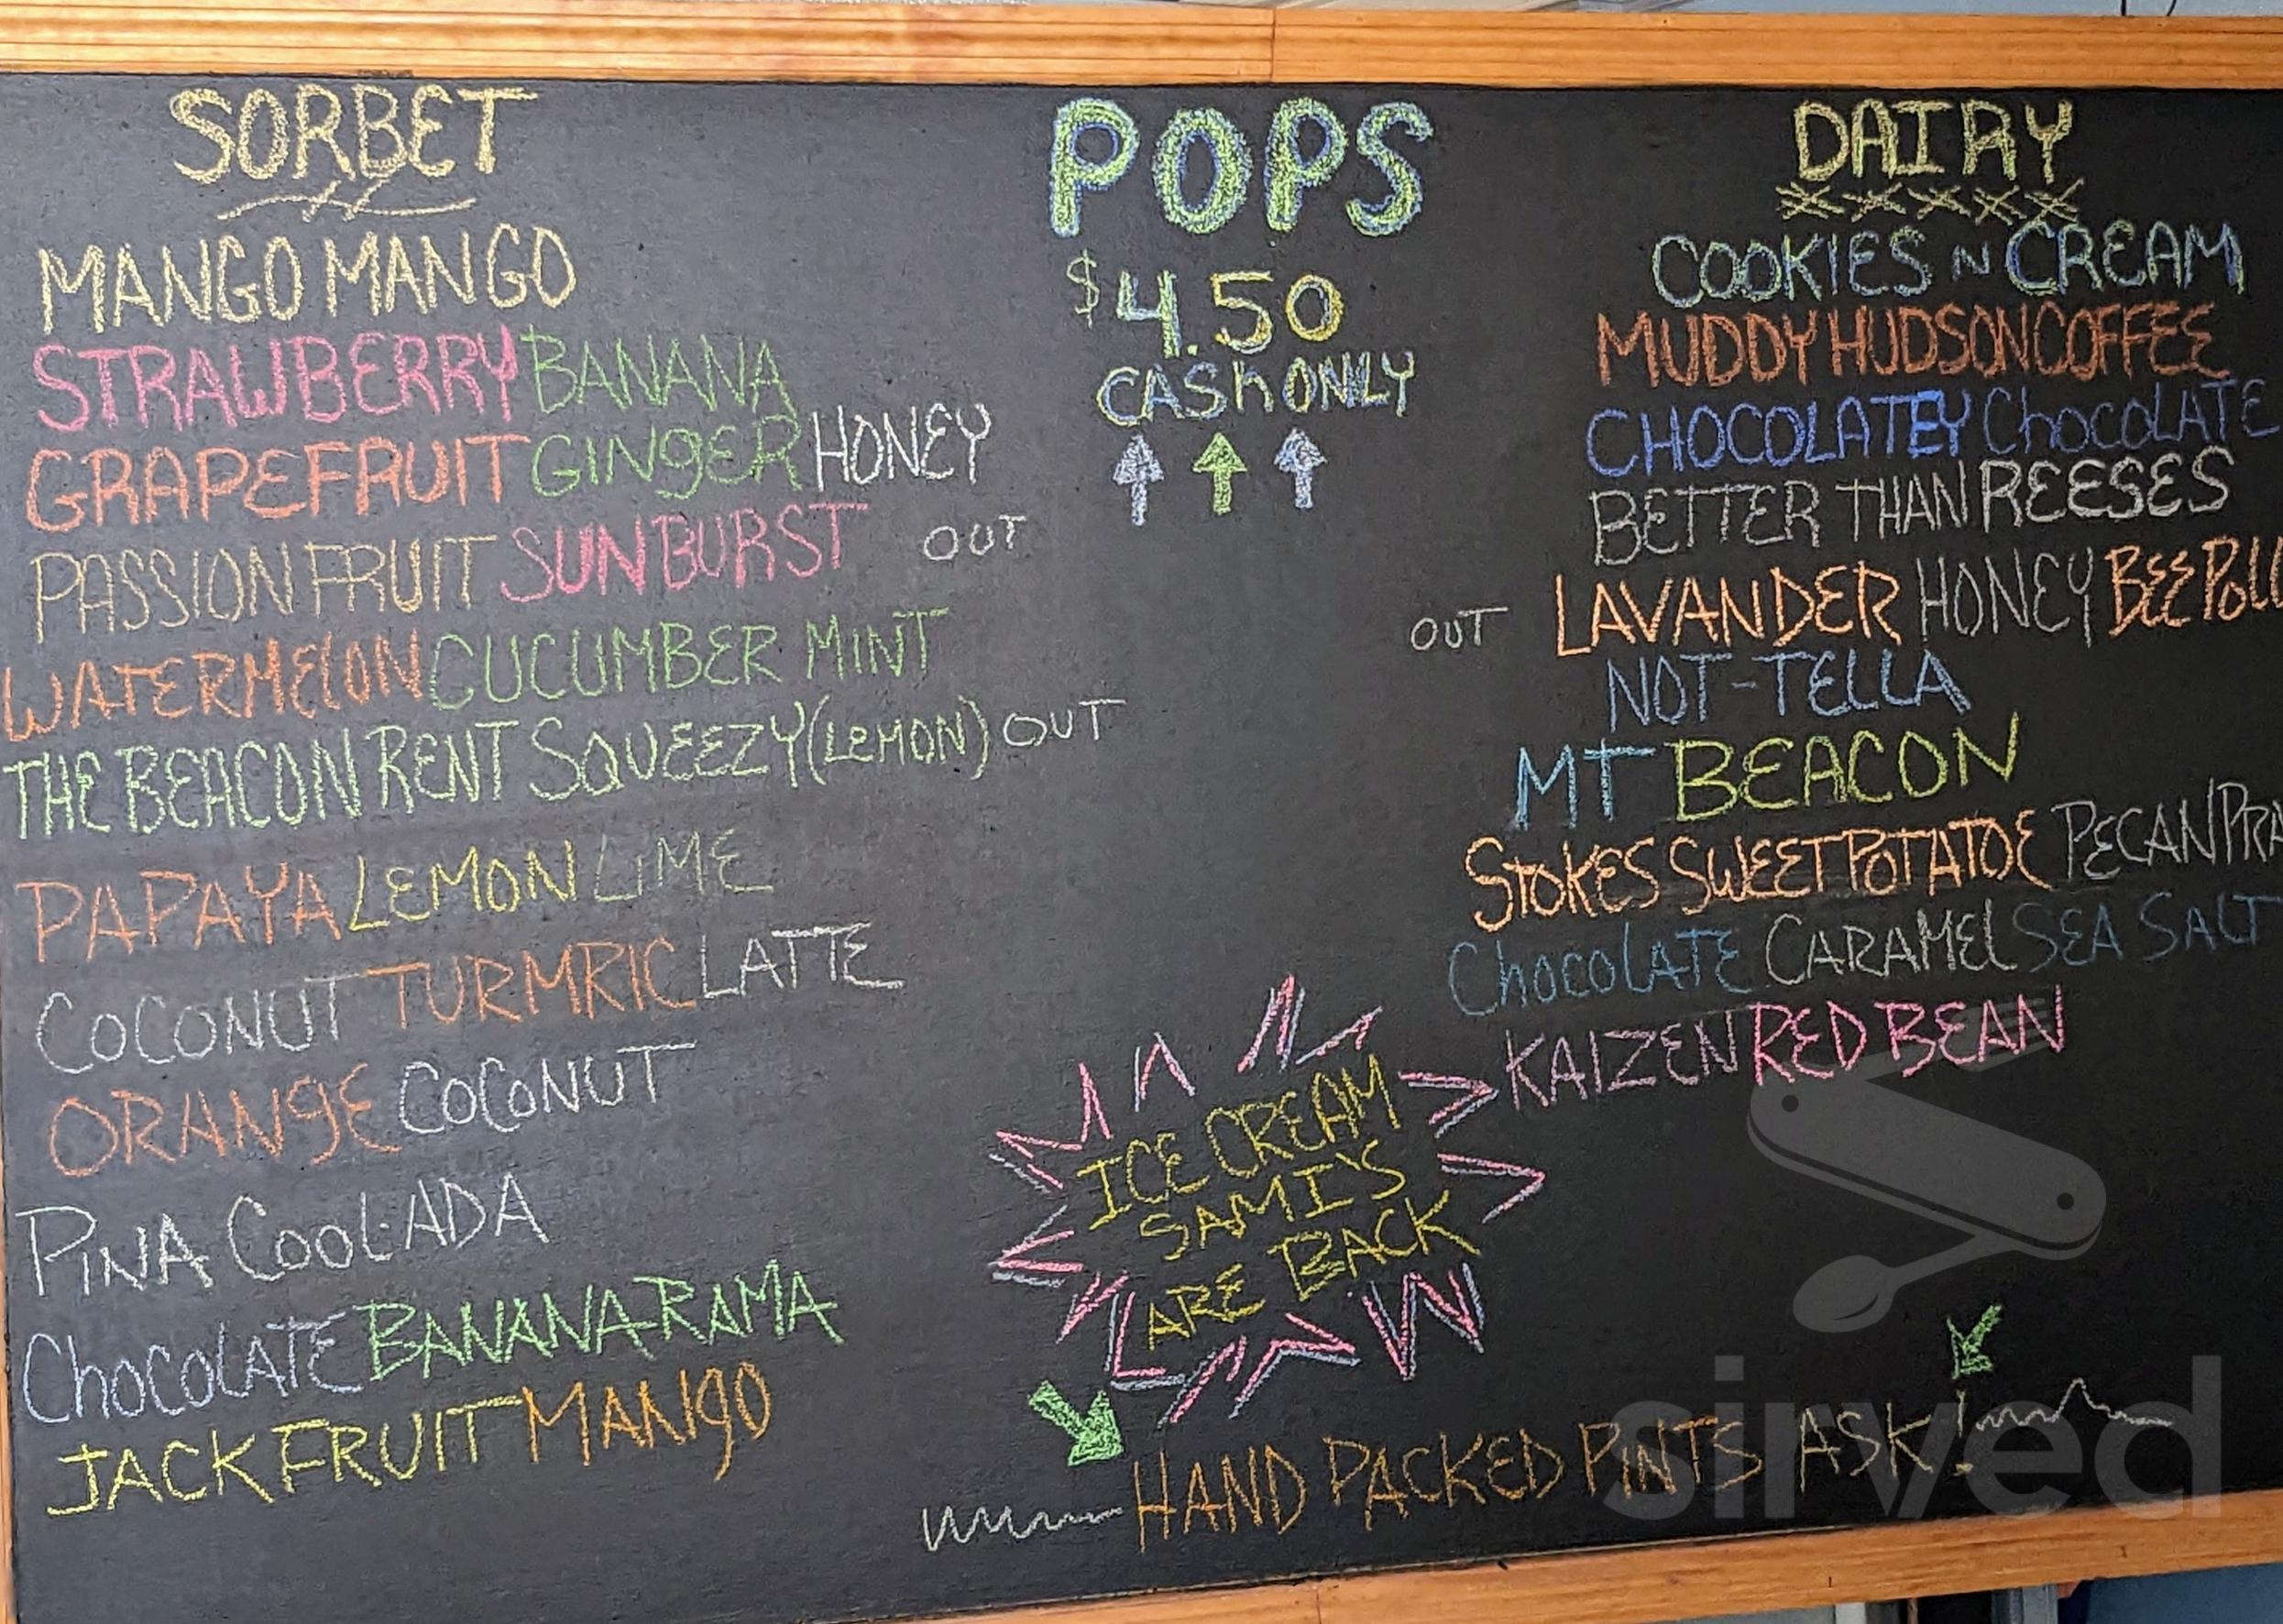 SORBET
MANGO MANGO
STRAWBERRY BANANA
GRAPEFRUIT GINGER HONEY
PASSION FRUIT SUNBURST OUT
WATERMELON CUCUMBER MINT
THE BEACON RENT SQUEEZY (LEMON) OUT
PAPAYA LEMON LIME
COCONUT TURMRIC LATTE
ORANGE COCONUT
PINA COOL-ADA
CHOCOLATE BANANA-RAMA
JACKFRUIT MANGO
POPS
$4.50
CASH ONLY
ICE CREAM
SAMI'S
ARE BACK
DAIRY
COOKIES N CREAM
MUDDY HUDSON COFFEE
CHOCOLATEY CHOCOLATE
BETTER THAN REESES
OUT LAVANDER HONEY BEE POLL
NOT-TELLA
MT BEACON
STOKES SWEET POTATOE PECAN PRA
CHOCOLATE CARAMEL SEA SALT
KAIZEN RED BEAN
HAND PACKED PINTS ASK!
sirved